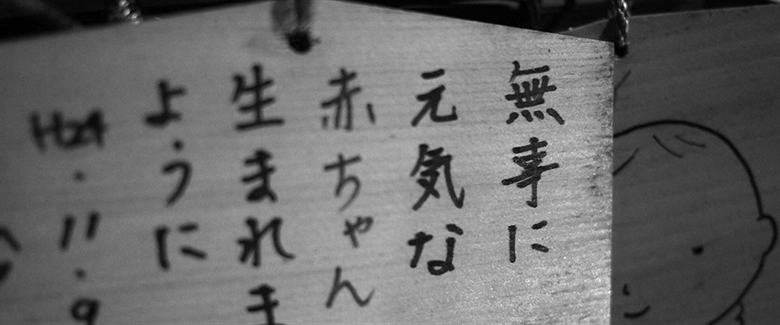 無事に
元気な
赤ちゃん
生まれま
ように
H24.11.9